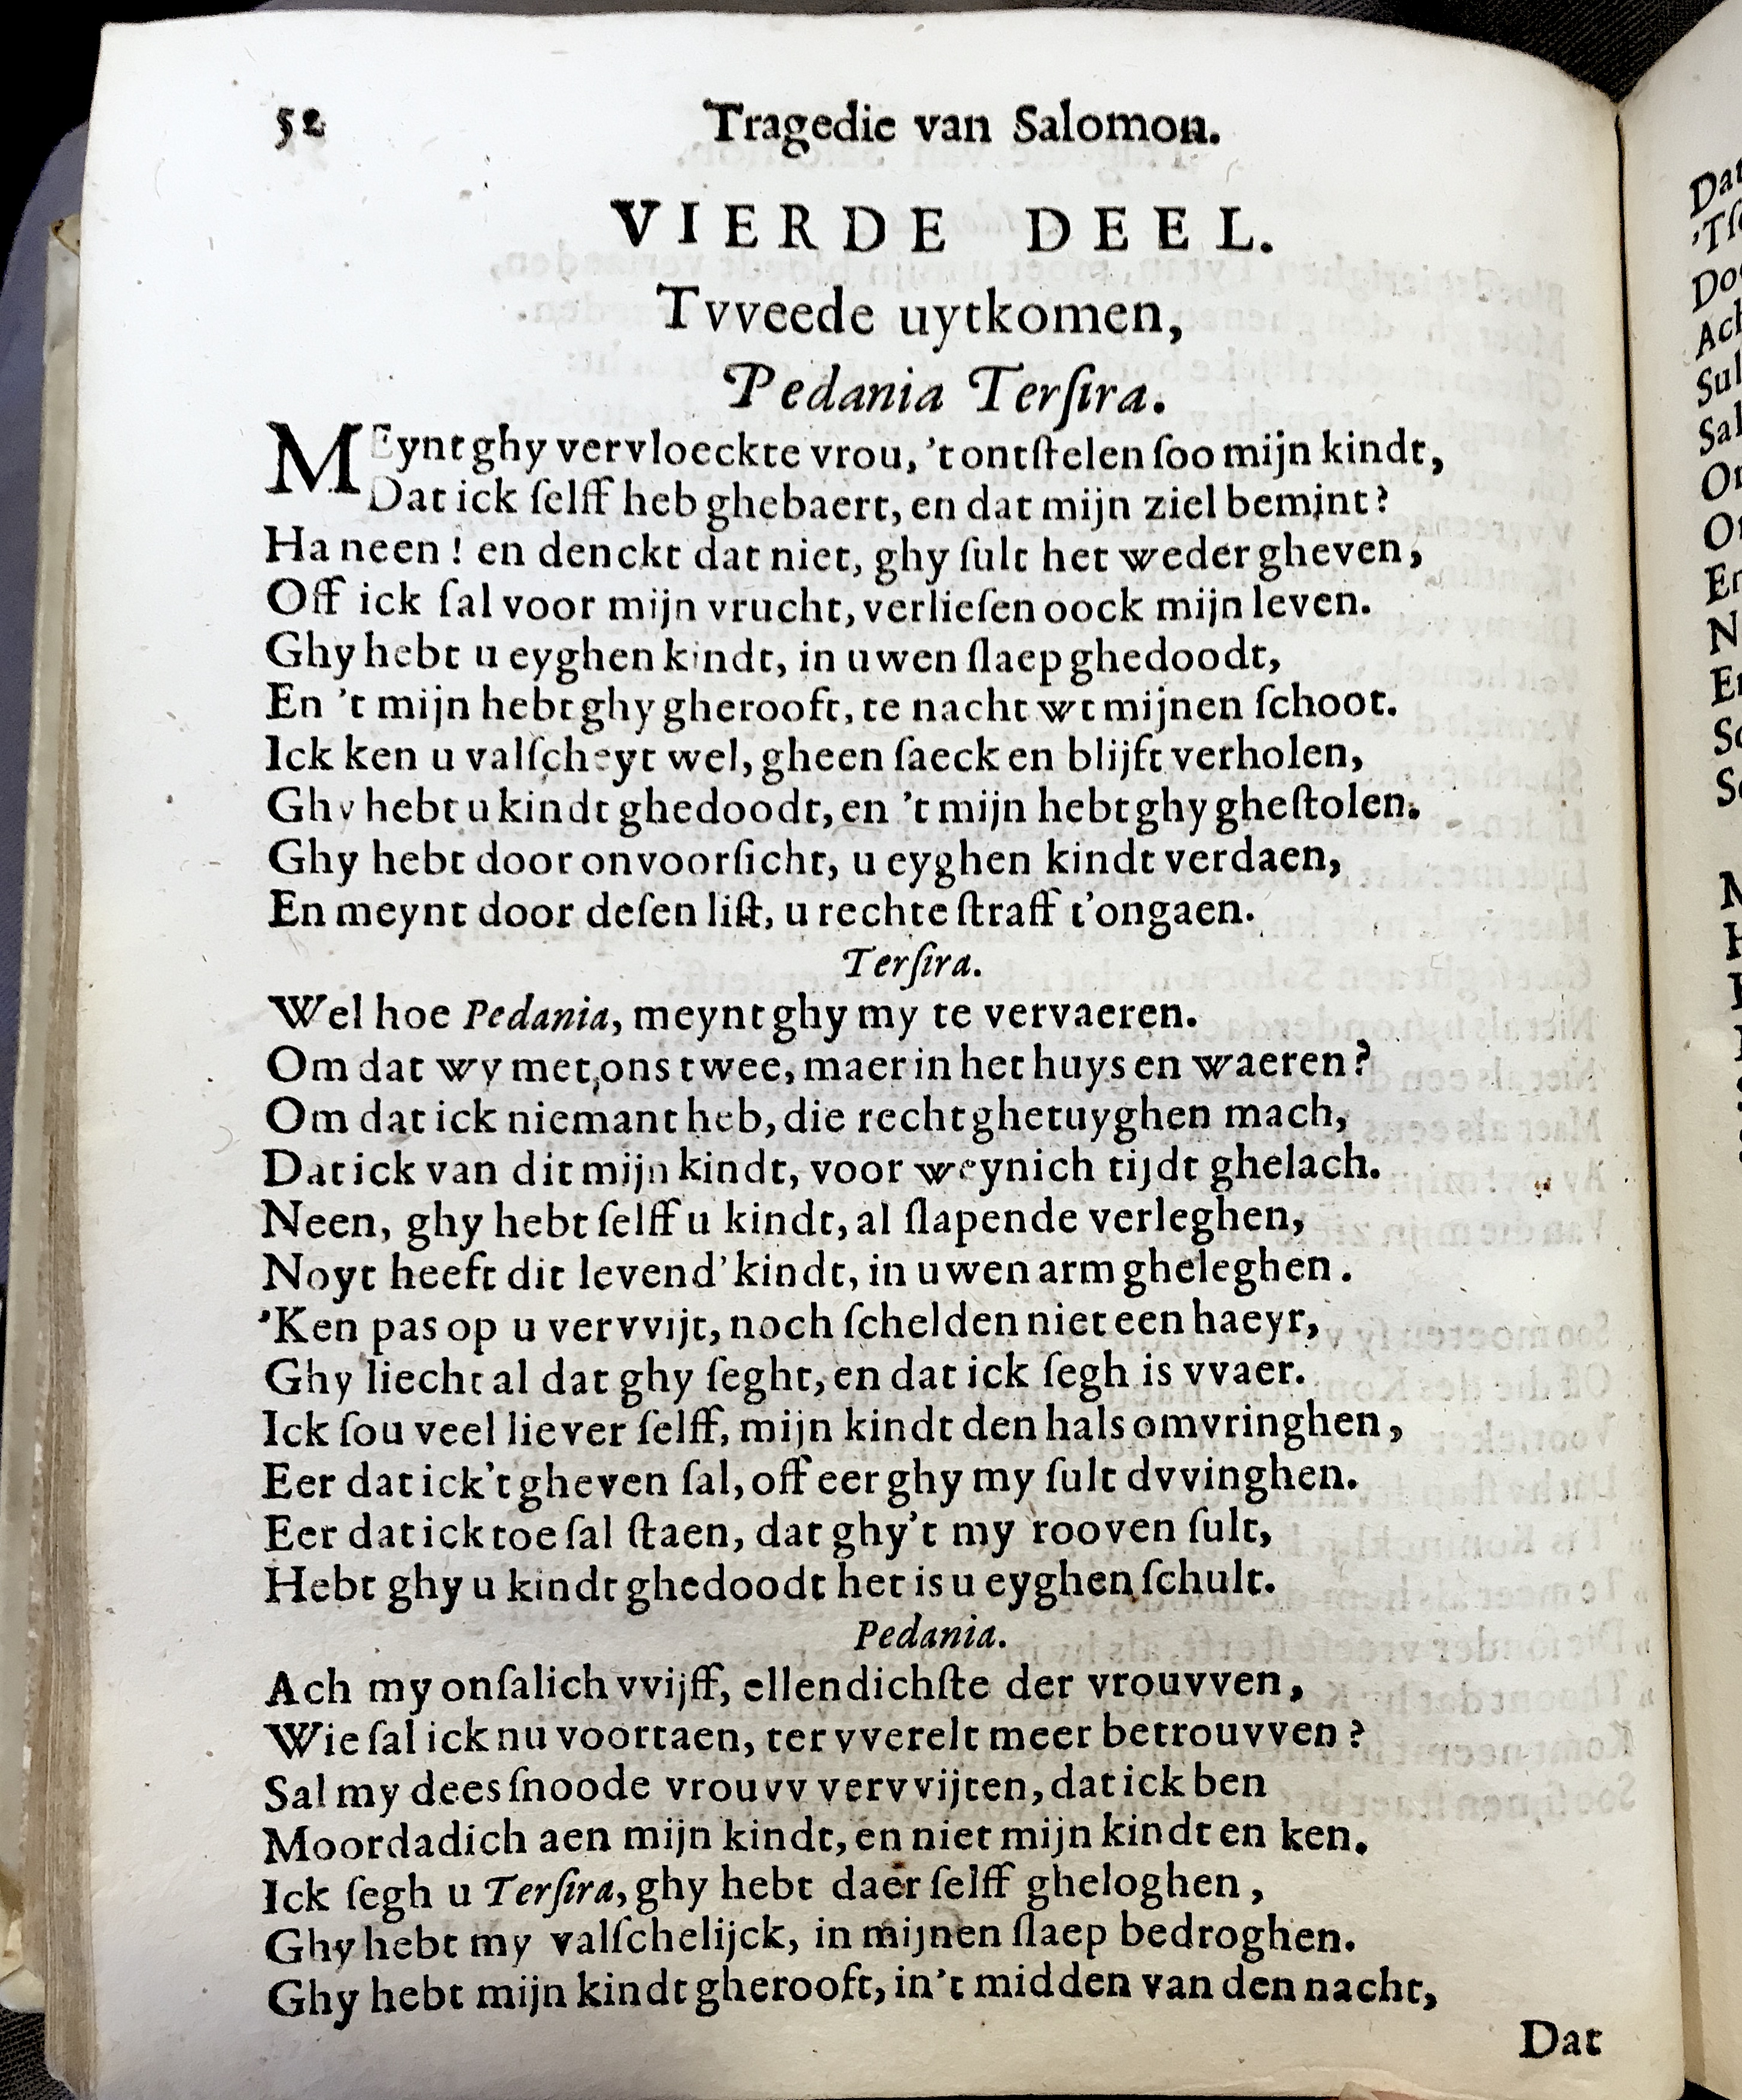 52 Tragedie van Salomon.
VIERDE DEEL.
Tvveede uytkomen,
Pedania Terſira.
MEynt ghy vervloeckte vrou, 't ontſtelen ſoo mijn kindt,
Dat ick ſelff heb ghebaert, en dat mijn ziel bemint?
Ha neen! en denckt dat niet, ghy ſult het weder gheven,
Off ick ſal voor mijn vrucht, verlieſen oock mijn leven.
Ghy hebt u eyghen kindt, in uwen ſlaep ghedoodt,
En 't mijn hebt ghy gherooft, te nacht wt mijnen ſchoot.
Ick ken u valſcheyt wel, gheen ſaeck en blijft verholen,
Ghy hebt u kindt ghedoodt, en 't mijn hebt ghy gheſtolen.
Ghy hebt door onvoorſicht, u eyghen kindt verdaen,
En meynt door deſen liſt, u rechte ſtraff t'ongaen.
Terſira.
Wel hoe Pedania, meynt ghy my te vervaeren.
Om dat wy met ons twee, maer in het huys en waeren?
Om dat ick niemant heb, die recht ghetuyghen mach,
Dat ick van dit mijn kindt, voor weynich tijdt ghelach.
Neen, ghy hebt ſelff u kindt, al ſlapende verleghen,
Noyt heeft dit levend' kindt, in uwen arm gheleghen.
'Ken pas op u vervvijt, noch ſchelden niet een haeyr,
Ghy liecht al dat ghy ſeght, en dat ick ſegh is vvaer.
Ick ſou veel liever ſelff, mijn kindt den hals omvringhen,
Eer dat ick't gheven ſal, off eer ghy my ſult dvvinghen.
Eer dat ick toe ſal ſtaen, dat ghy't my rooven ſult,
Hebt ghy u kindt ghedoodt het is u eyghen ſchult.
Pedania.
Ach my onſalich vvijff, ellendichſte der vrouvven,
Wie ſal ick nu voortaen, ter vverelt meer betrouvven?
Sal my dees ſnoode vrouvv vervvijten, dat ick ben
Moordadich aen mijn kindt, en niet mijn kindt en ken.
Ick ſegh u Terſira, ghy hebt daer ſelff gheloghen,
Ghy hebt my valſchelijck, in mijnen ſlaep bedroghen.
Ghy hebt mijn kindt gherooft, in't midden van den nacht,
Dat